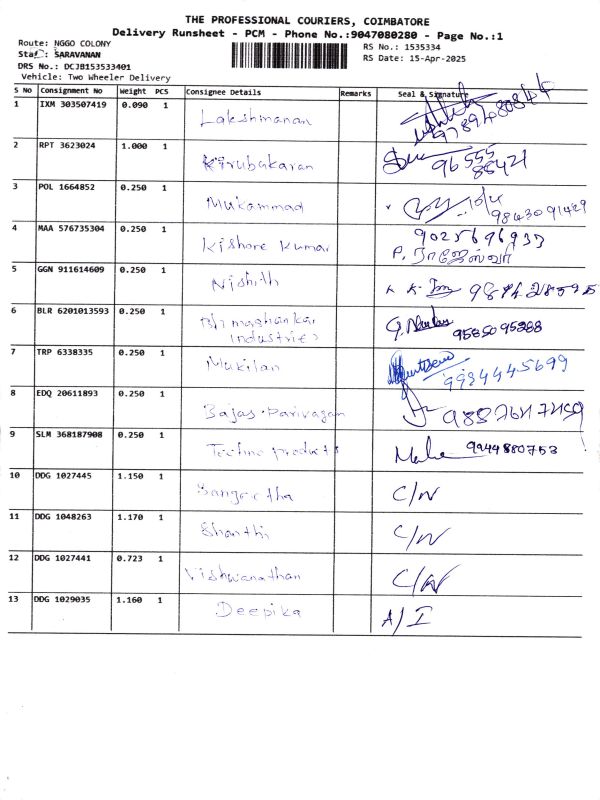 THE PROFESSIONAL COURIERS, COIMBATORE
Delivery Runsheet - PCM - Phone No.:9047080280 - Page No.:1
Route: NGGO COLONY
RS No.: 1535334
SARAVANAN
RS Date: 15-Apr-2025
DRS No.: DCJB153533401
Vehicle: Two Wheeler Delivery
S No Consignment No Weight PCS Consignee Details Remarks Seal & Signature
1 IXM 303507419 0.090 1 Lakshmanan
2 RPT 3623024 1.000 1 Kirubakaran 96555
85421
3 POL 1664852 0.250 1 Mukammad 15/4
9843091429
4 MAA 576735304 0.250 1 Kishore Kumar 9025696937
P. ராஜேஸ்வரி
5 GGN 911614609 0.250 1 Nishith
6 BLR 6201013593 0.250 1 9585095288
Industries
7 TRP 6338335 0.250 1 Mukilan 9994445699
8 EDQ 20611893 0.250 1
9 SLM 368187908 0.250 1 Techno products 9944880753
10 DDG 1027445 1.150 1 Sangeetha C/N
11 DDG 1048263 1.170 1 Shanthi C/N
12 DDG 1027441 0.723 1 Vishwanathan C/N
13 DDG 1029035 1.160 1 Deepika A/I